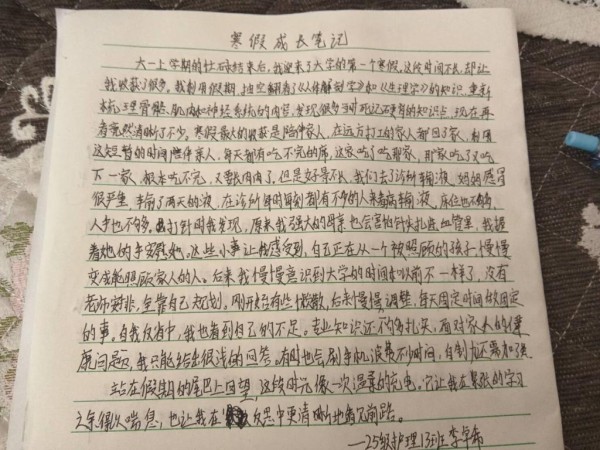 寒假成长笔记
大一上学期的忙碌结束后,我迎来了大学的第一个寒假,这段时间不长,却让
我收获了很多。我利用假期,抽空翻看了《人体解剖学》和《生理学》的知识,重新
梳理骨骼、肌肉和神经系统的内容,发现很多当时死记不懂的知识点,现在再
看竟然清晰了不少。寒假最大的收获是陪伴家人,在远方打工的家人都回了家,
这短暂的时间陪伴亲人,每天都有吃不完的席,这家吃了吃那家,那家吃了又吃
下一家,根本吃不完,又要长肉肉了。但是好景不长,我们去了诊所输液,妈妈感冒
很严重,输了两天的液,在诊所每时每刻都有不少的人来看病输液,床位也不够,
人手也不够多。打针时我发现,原来我强大的母亲也会害怕针头扎进血管里,我握
着她的手安慰她,这些小事让我感受到,自己正在从一个被照顾的孩子,慢慢
变成能照顾家人的人。后来我慢慢意识到大学的时间和以前不一样了,没有
老师安排,全靠自己规划。刚开始有些懒散,后来慢慢调整,每天固定时间做固定
的事。自我反省中,我也看到自己的不足。专业知识还不够扎实,面对家人的健
康问题,我只能给出很浅的回答。有时也会刷手机浪费不少时间,自制力还需加强。
站在假期的尾巴上回望,这段时光像一次温柔的充电。它让我在紧张的学习
之余得以喘息,也让我在反思中更清晰地看见前路。
—25级护理13班 李